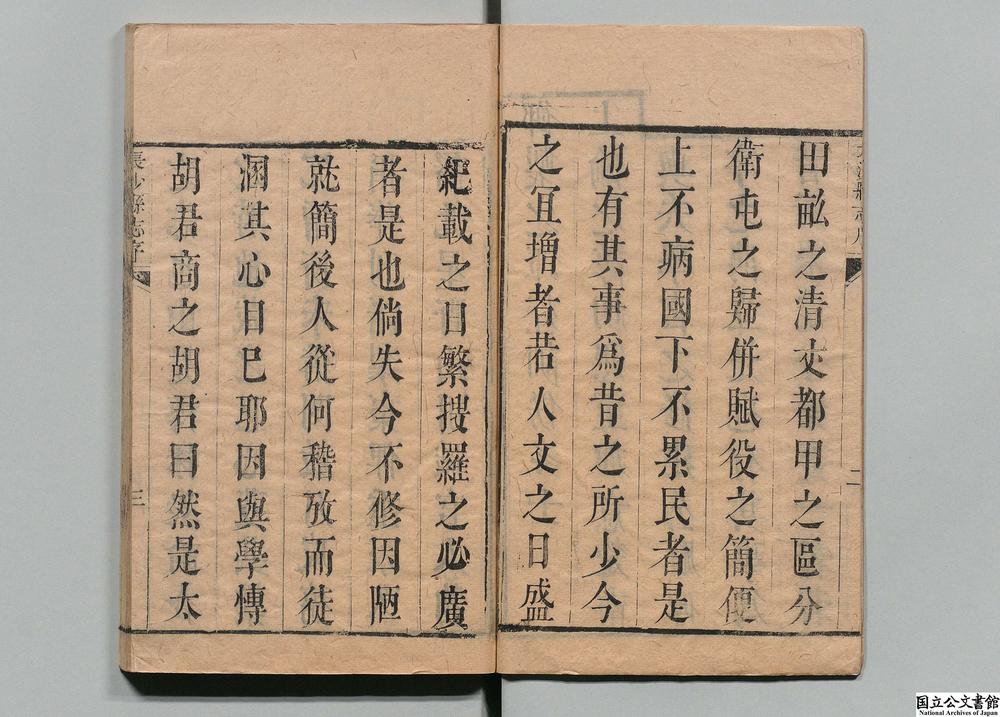 田畝之清丈都甲之區分
衛屯之歸併賦役之簡便
上不病國下不累民者是
也有其事爲昔之所少今
之宜增者若人文之日盛
紀載之日繁搜羅之必廣
者是也倘失今不修因陋
就簡後人從何稽攷而徒
溷其心目已耶因與學博
胡君商之胡君曰然是太
二
長沙縣志序
三
国立公文書館
National Archives of Japan